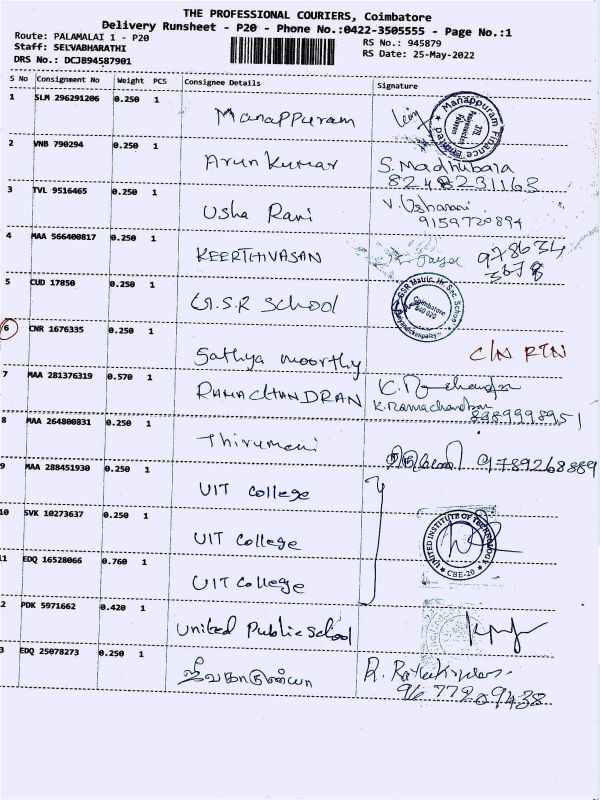 THE PROFESSIONAL COURIERS, Coimbatore
Delivery Runsheet - P20 - Phone No.:0422-3505555 - Page No.:1
Route: PALAMALAI 1 - P20
Staff: SELVABHARATHI
DRS No.: DCJB94587901
RS No.: 945879
RS Date: 25-May-2022
S No Consignment No Weight PCS Consignee Details Signature
1 SLM 296291206 0.250 1 Manappuram
Manappuram Finance Limited
2 VNB 790294 0.250 1 Arun Kumar S. Madhubala
8248231163
3 TVL 9516465 0.250 1 Usha Rani V. Usharani
9159720894
4 MAA 566400817 0.250 1 KEERTHIVASAN 978634
3678
5 CUD 17850 0.250 1 G.S.R School
GSR Matric. Hr. Sec. School
Coimbatore
641 020
6 CNR 1676335 0.250 1 Sathya moorthy C/N RTN
7 MAA 281376319 0.570 1 RAMACHANDRAN
K. Ramachandran
8489998951
8 MAA 264800831 0.250 1 Thirumeni 9789268889
9 MAA 288451930 0.250 1 UIT college
10 SVK 10273637 0.250 1 UIT college
UNITED INSTITUTE OF TECHNOLOGY
CBE-20
11 EDQ 16528066 0.760 1 UIT College
2 PDK 5971662 0.420 1 United Public School
3 EDQ 25078273 0.250 1
9677209438